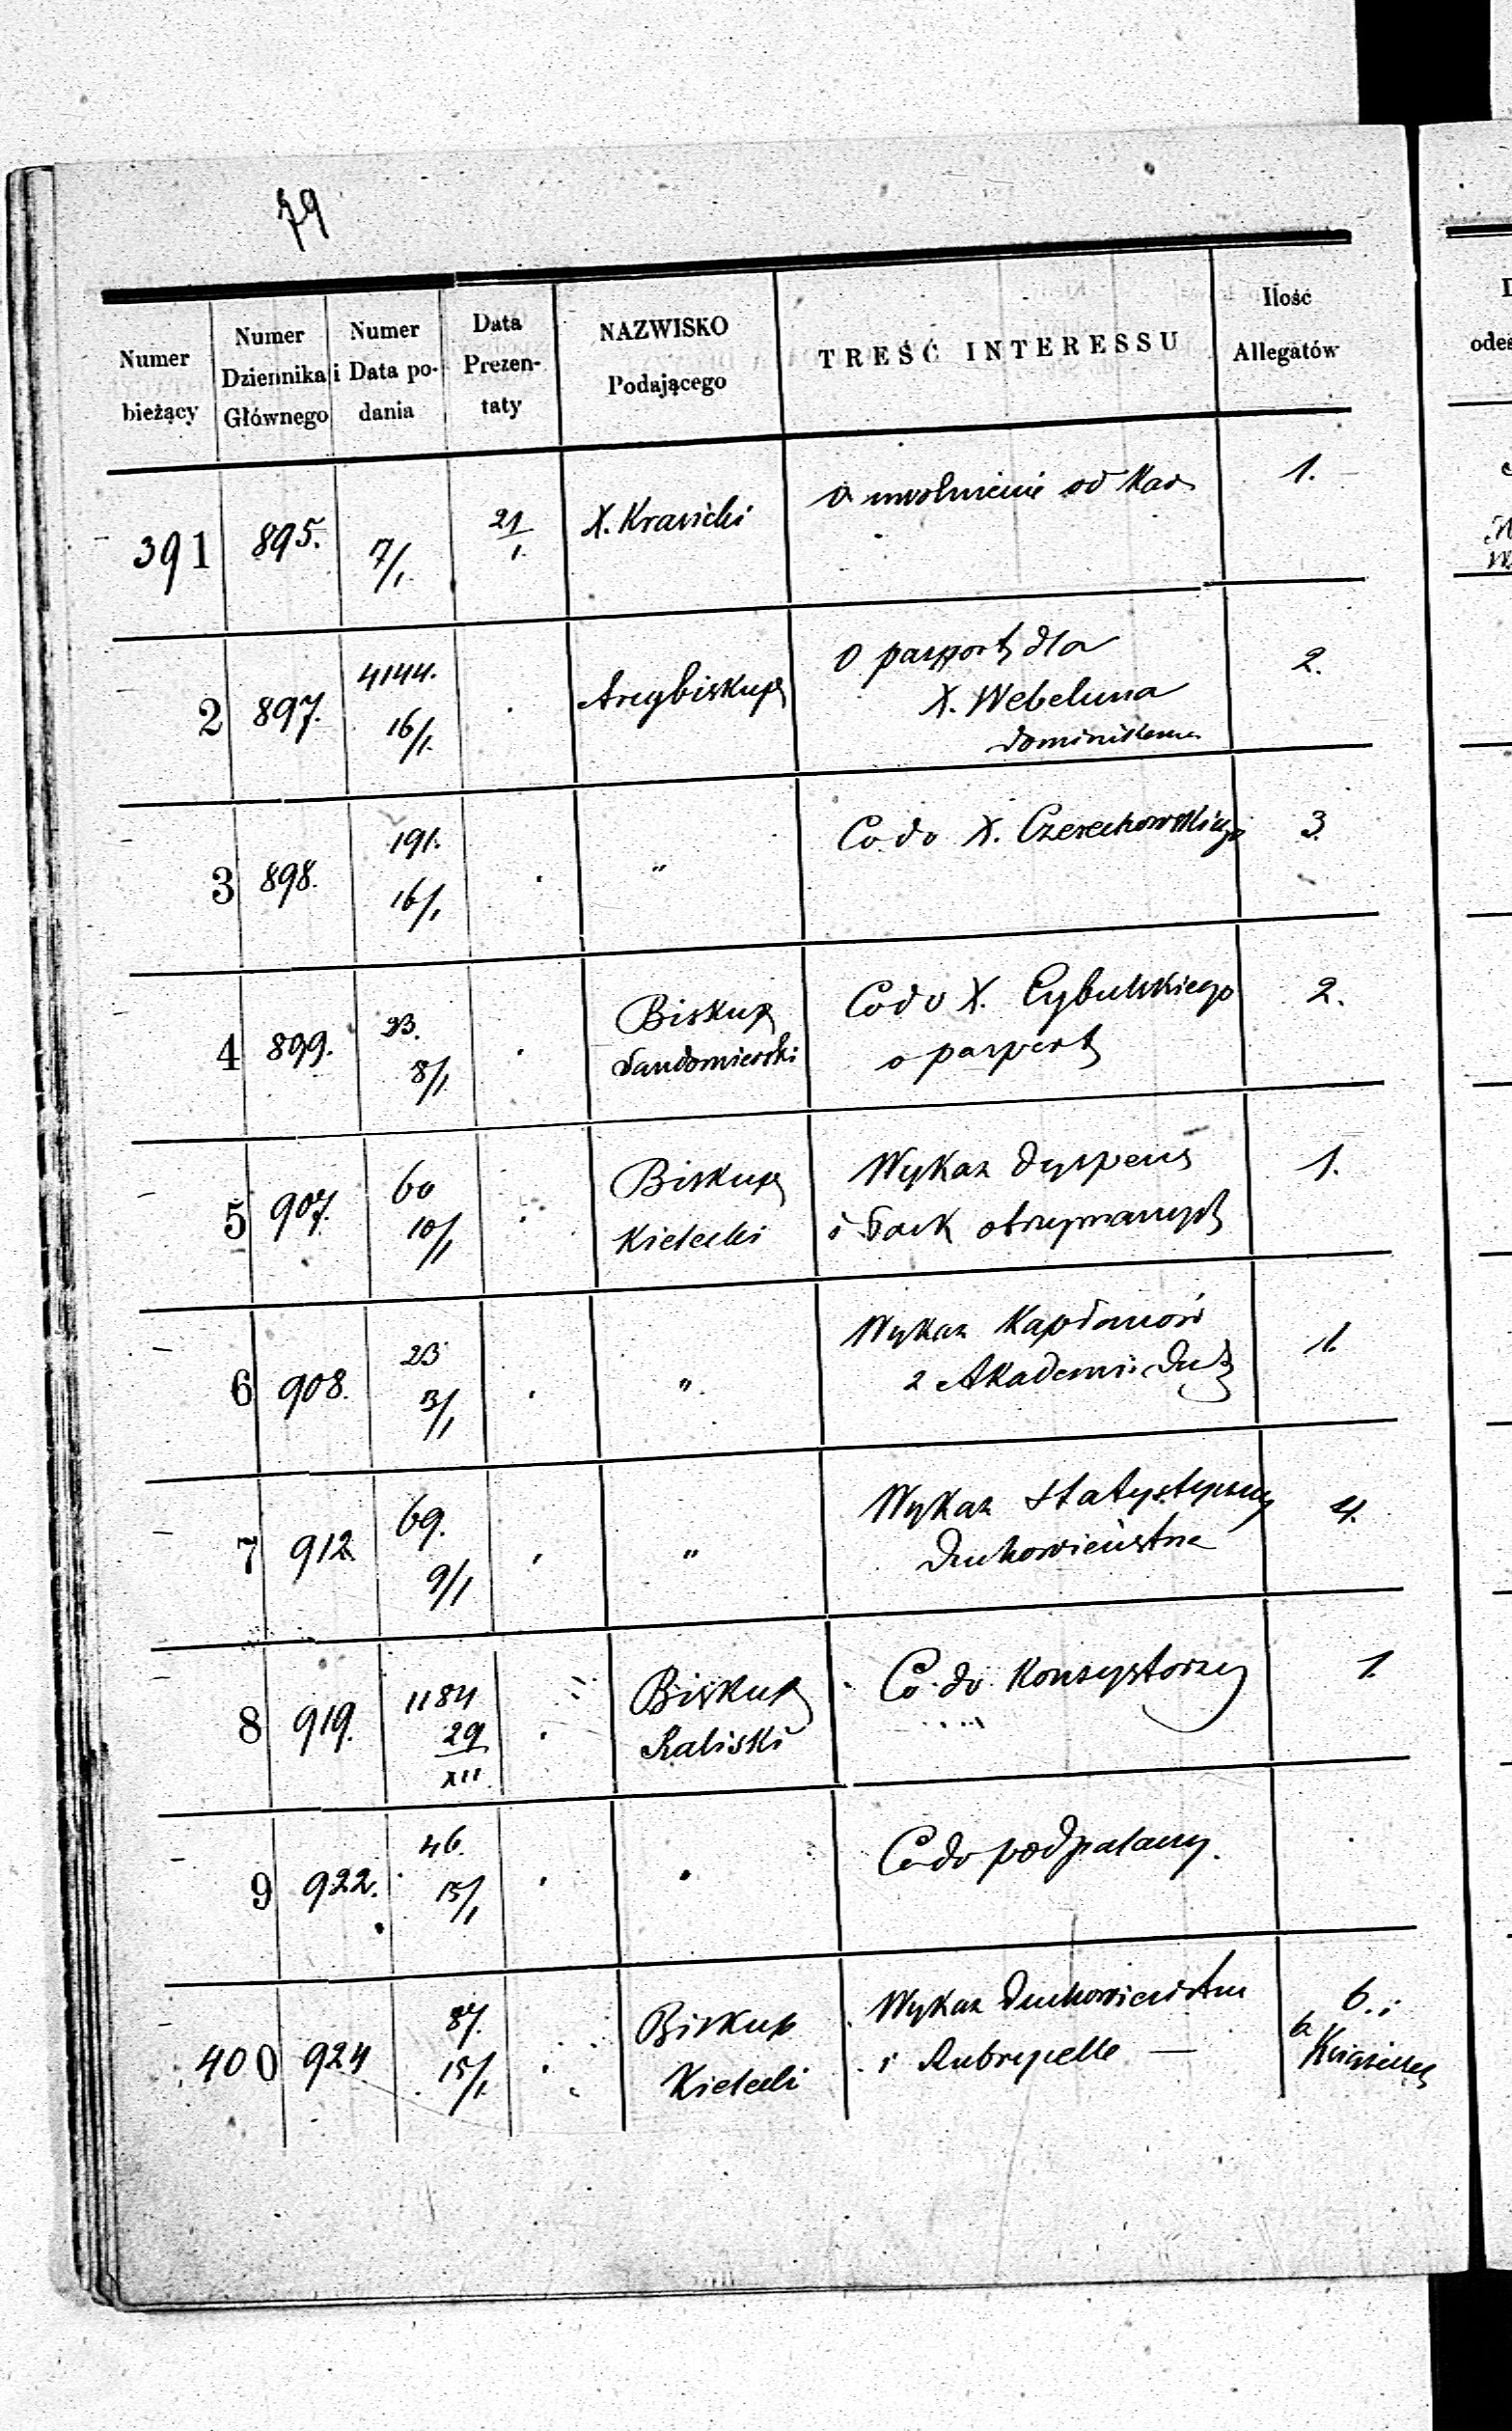 79
Numer bieżący
Numer Dziennika Głównego
Numer i Data podania
Data Prezentaty
NAZWISKO Podającego
TREŚĆ INTERESSU
Ilość Allegatów
391 895. 7/1. 21/1. X. Krasicki O uwolnienie od kar 1.
2 897. 4144. 16/1. Arcybiskup O paszport dla 2.
X.
Dominikana
3 898. 191. 16/1 " Co do X. Czerechowskiego 3.
4 899. 23. 8/1. Biskup Sandomierski Co do X. Cybulskiego 2.
o paszport
5 907. 60 10/1 Biskup Kielecki Wykaz dyspens 1.
i otrzymanych
6 908. 23 13/1 " Wykaz Kapłanów 1.
z Akademii Duch
7 912 69. 9/1 " Wykaz statystyczny 4.
Duchowieństwa
8 919. 1184 29/XII Biskup Kaliski Co do Konsystorzy 1.
9 922. 46. 15/1 Co do
400 924 87. 15/1 Biskup Kielecki Wykaz Duchowieństwa 6. i
i Rubrycelle — Książeczek